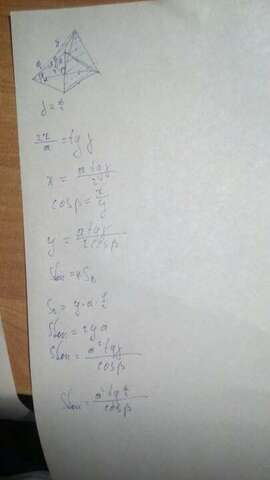 γ = α/2
2x/a = tg γ
x = a tgγ / 2
cosβ = x/y
y = a tgγ / 2cosβ
Sбок = 4S₂
S₂ = y·a·½
Sбок = 2ya
Sбок = a² tgγ / cosβ
Sбок = a² tg α/2 / cosβ